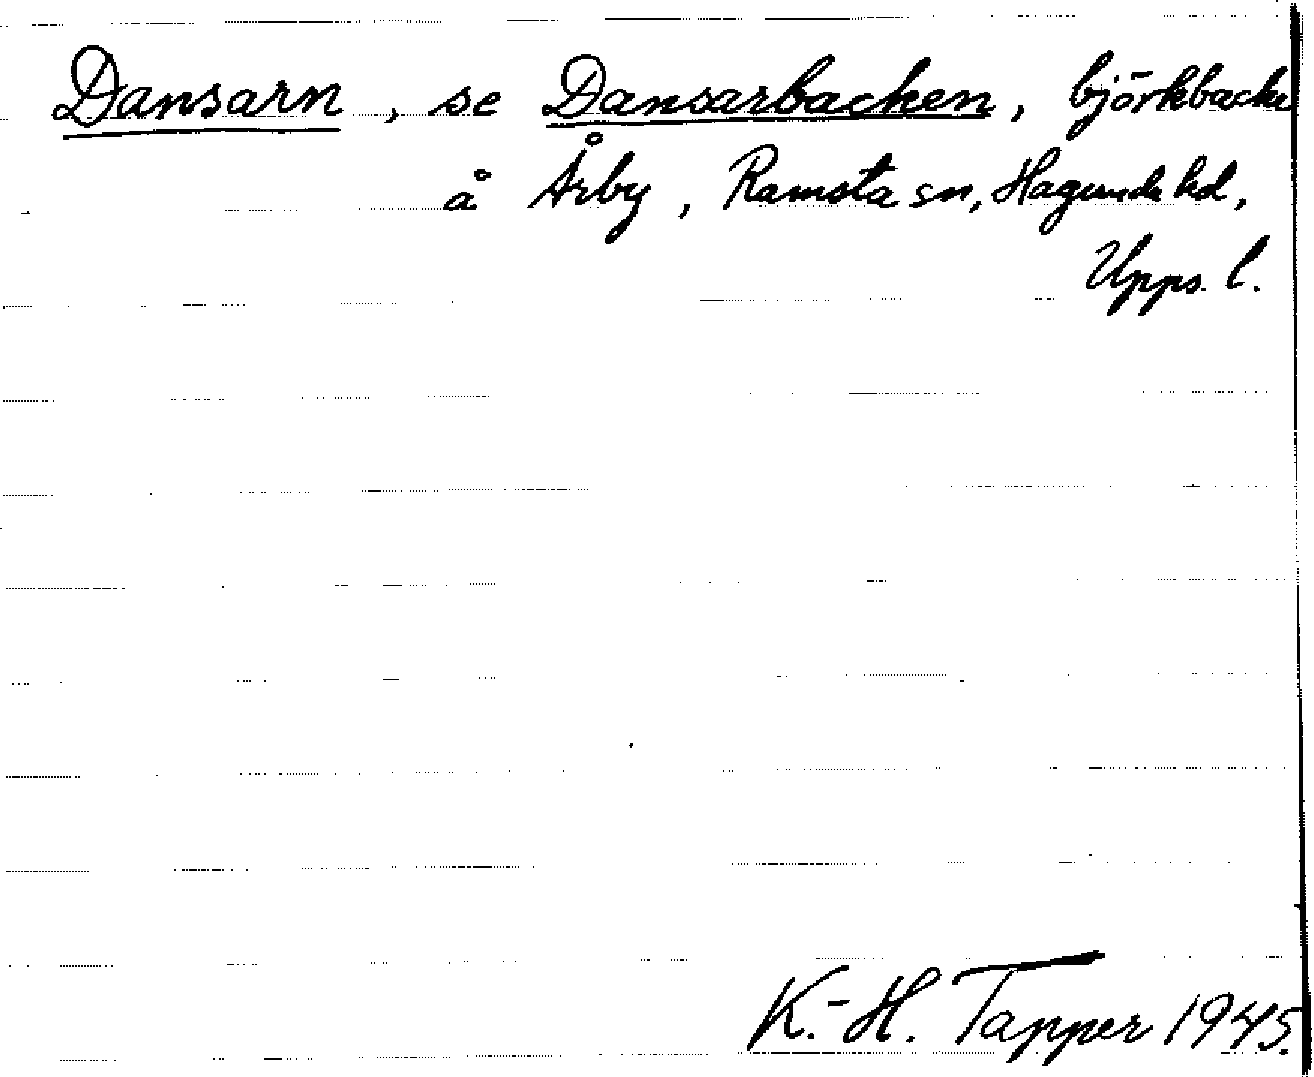 Dansarn, se Dansarbacken, björkbacke
å Årby, Ramsta sn, Hagunda hd,
Upps. l.
K.-H. Tapper 1945.